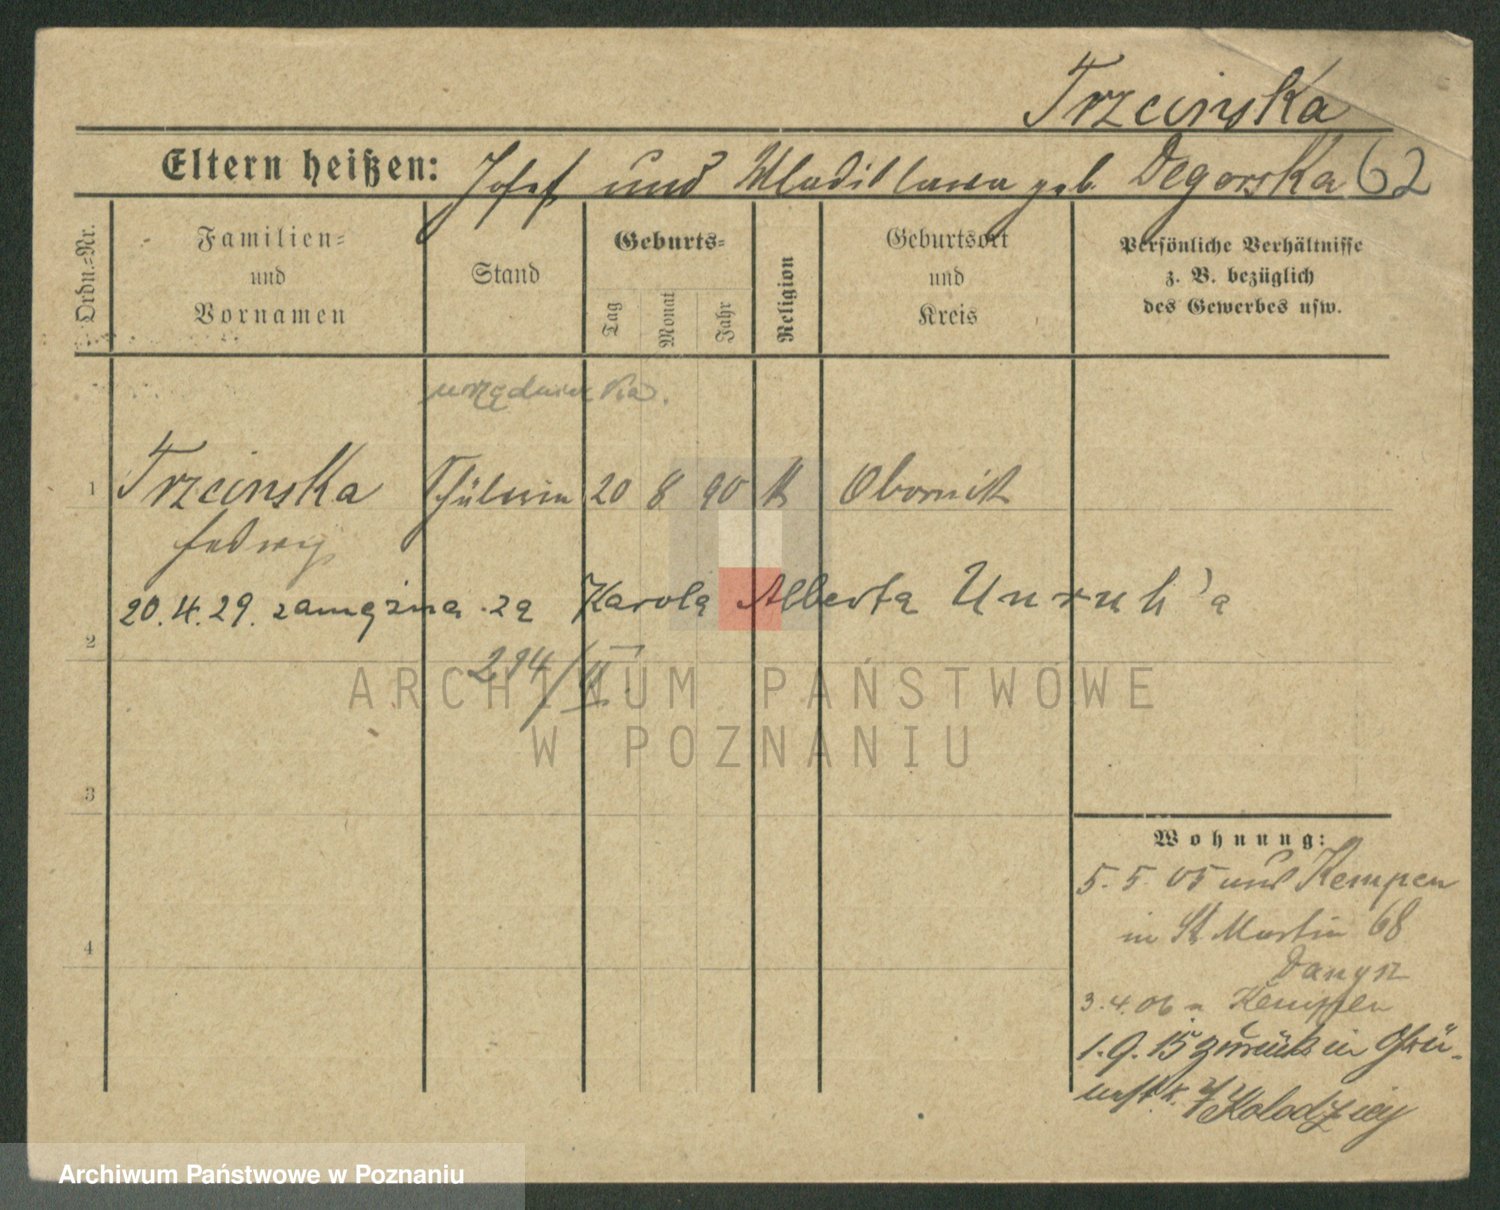 Trzcinska
Eltern heißen: Josef und Wladislawa geb. Degorska 62
Ordn.-Nr.
Familien-
und
Vornamen
Stand
Geburts-
Tag
Monat
Jahr
Religion
Geburtsort
und
Kreis
Persönliche Verhältnisse
z. B. bezüglich
des Gewerbes usw.
urzędniczka.
1 Trzcinska Schülerin 20 8 90 K Obornik
Hedwig
20.4.29. zamężna za Karola Alberta Unruh'a
2
294/II
ARCHIWUM PAŃSTWOWE
W POZNANIU
3
Wohnung:
5.5.05 Kempen
in St Martin 68
4
3.4.06 n Kempen
1.9.15 zurück in
Archiwum Państwowe w Poznaniu